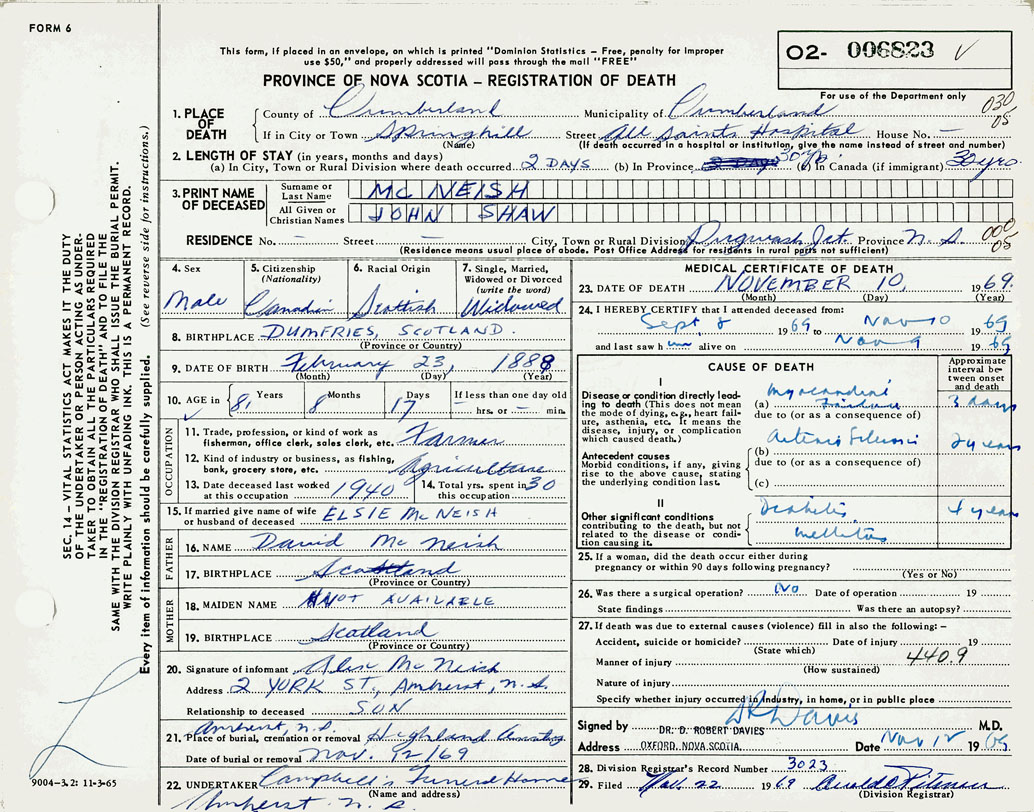 FORM 6
This form, if placed in an envelope, on which is printed "Dominion Statistics – Free, penalty for improper
use $50," and properly addressed will pass through the mail "FREE"
PROVINCE OF NOVA SCOTIA – REGISTRATION OF DEATH
02- 006823 V
For use of the Department only
030
05
1. PLACE OF DEATH
County of Cumberland Municipality of Cumberland
If in City or Town Springhill Street All Saints Hospital House No. –
(Name) (If death occurred in a hospital or institution, give the name instead of street and number)
2. LENGTH OF STAY (in years, months and days)
(a) In City, Town or Rural Division where death occurred 2 DAYS (b) In Province 30 yrs. (c) In Canada (if immigrant) 30 yrs
3. PRINT NAME OF DECEASED
Surname or Last Name MC NEISH
All Given or Christian Names JOHN SHAW
RESIDENCE No. – Street – City, Town or Rural Division Pugwash Jct. Province N. S.
000
05
(Residence means usual place of abode. Post Office Address for residents in rural parts not sufficient)
4. Sex Male
5. Citizenship (Nationality) Canadian
6. Racial Origin Scottish
7. Single, Married, Widowed or Divorced (write the word) Widowed
8. BIRTHPLACE DUMFRIES, SCOTLAND.
(Province or Country)
9. DATE OF BIRTH February 23, 1888
(Month) (Day) (Year)
10. AGE in 81 Years 8 Months 17 Days If less than one day old – hrs. or – min.
OCCUPATION
11. Trade, profession, or kind of work as fisherman, office clerk, sales clerk, etc. Farmer
12. Kind of industry or business, as fishing, bank, grocery store, etc. Agriculture
13. Date deceased last worked at this occupation 1940 14. Total yrs. spent in this occupation 30
15. If married give name of wife or husband of deceased ELSIE McNEISH
FATHER
16. NAME David McNeish
17. BIRTHPLACE Scotland
(Province or Country)
MOTHER
18. MAIDEN NAME NOT AVAILABLE
19. BIRTHPLACE Scotland
(Province or Country)
20. Signature of informant Alex McNeish
Address 2 YORK ST., Amherst, N. S.
Relationship to deceased SON
Amherst, N.S.
21. Place of burial, cremation or removal Highland
Date of burial or removal Nov. 12/69
22. UNDERTAKER Campbell's Funeral Home
(Name and address)
Amherst N. S.
MEDICAL CERTIFICATE OF DEATH
23. DATE OF DEATH NOVEMBER 10, 1969.
(Month) (Day) (Year)
24. I HEREBY CERTIFY that I attended deceased from:
Sept 8 1969 to Nov 10 1969
and last saw h im alive on Nov 9 1969
CAUSE OF DEATH
Approximate interval between onset and death
I
Disease or condition directly leading to death (This does not mean the mode of dying, e.g., heart failure, asthenia, etc. It means the disease, injury, or complication which caused death.)
(a) Myocardial Failure 3 days
due to (or as a consequence of)
Antecedent causes
Morbid conditions, if any, giving rise to the above cause, stating the underlying condition last.
(b) Arterio Sclerosis years
due to (or as a consequence of)
(c)
II
Other significant conditions contributing to the death, but not related to the disease or condition causing it.
Diabetes mellitus years
25. If a woman, did the death occur either during pregnancy or within 90 days following pregnancy?
(Yes or No)
26. Was there a surgical operation? No Date of operation 19
State findings Was there an autopsy?
27. If death was due to external causes (violence) fill in also the following: –
Accident, suicide or homicide? Date of injury 19
(State which)
440.9
Manner of injury
(How sustained)
Nature of injury
Specify whether injury occurred in industry, in home, or in public place
Signed by D R Davis M.D.
DR. D. ROBERT DAVIES
Address OXFORD, NOVA SCOTIA. Date Nov 12 1969
28. Division Registrar's Record Number 3023
29. Filed 22 1969
(Division Registrar)
SEC. 14 – VITAL STATISTICS ACT MAKES IT THE DUTY
OF THE UNDERTAKER OR PERSON ACTING AS UNDER-
TAKER TO OBTAIN ALL THE PARTICULARS REQUIRED
IN THE "REGISTRATION OF DEATH" AND TO FILE THE
SAME WITH THE DIVISION REGISTRAR WHO SHALL ISSUE THE BURIAL PERMIT.
WRITE PLAINLY WITH UNFADING INK. THIS IS A PERMANENT RECORD.
Every item of information should be carefully supplied. (See reverse side for instructions.)
9004–3.2: 11-3-65